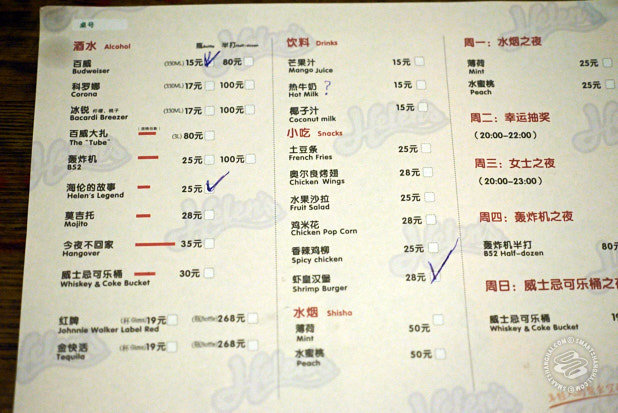 桌号
酒水 Alcohol 瓶/Bottle 半打/Half-dozen
百威 (330ML) 15元 80元
Budweiser
科罗娜 (330ML) 17元 100元
Corona
冰锐 (330ML) 17元 100元
Bacardi Breezer
百威大扎 (3L) 80元
The "Tube"
轰炸机 25元 100元
B52
海伦的故事 25元
Helen's Legend
莫吉托 28元
Mojito
今夜不回家 35元
Hangover
威士忌可乐桶 30元
Whiskey & Coke Bucket
红牌 (杯/Glass) 19元 (瓶/Bottle) 268元
Johnnie Walker Label Red
金快活 (杯/Glass) 19元 (瓶/Bottle) 268元
Tequila
饮料 Drinks
芒果汁 15元
Mango Juice
热牛奶 ? 15元
Hot Milk
椰子汁 15元
Coconut milk
小吃 Snacks
土豆条 25元
French Fries
奥尔良烤翅 28元
Chicken Wings
水果沙拉 25元
Fruit Salad
鸡米花 28元
Chicken Pop Corn
香辣鸡柳 25元
Spicy chicken
虾皇汉堡 28元
Shrimp Burger
水烟 Shisha
薄荷 50元
Mint
水蜜桃 50元
Peach
周一：水烟之夜
薄荷 25元
Mint
水蜜桃 25元
Peach
周二：幸运抽奖
(20:00-22:00)
周三：女士之夜
(20:00-23:00)
周四：轰炸机之夜
轰炸机半打 80
B52 Half-dozen
周日：威士忌可乐桶之夜
威士忌可乐桶 19
Whiskey & Coke Bucket
Helen's
SMARTSHANGHAI.COM